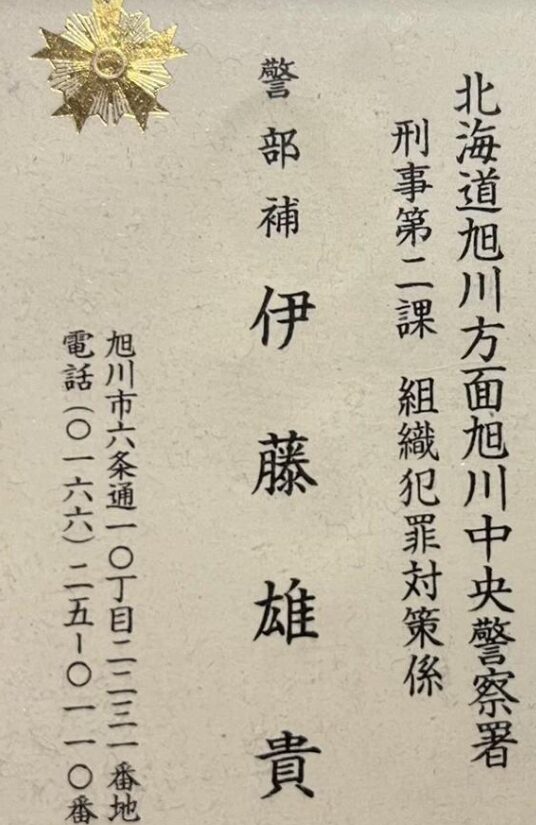 北海道旭川方面旭川中央警察署
刑事第二課 組織犯罪対策係
警部補 伊藤雄貴
旭川市六条通一〇丁目二二三一番地
電話(〇一六六)二五ー〇一一〇番